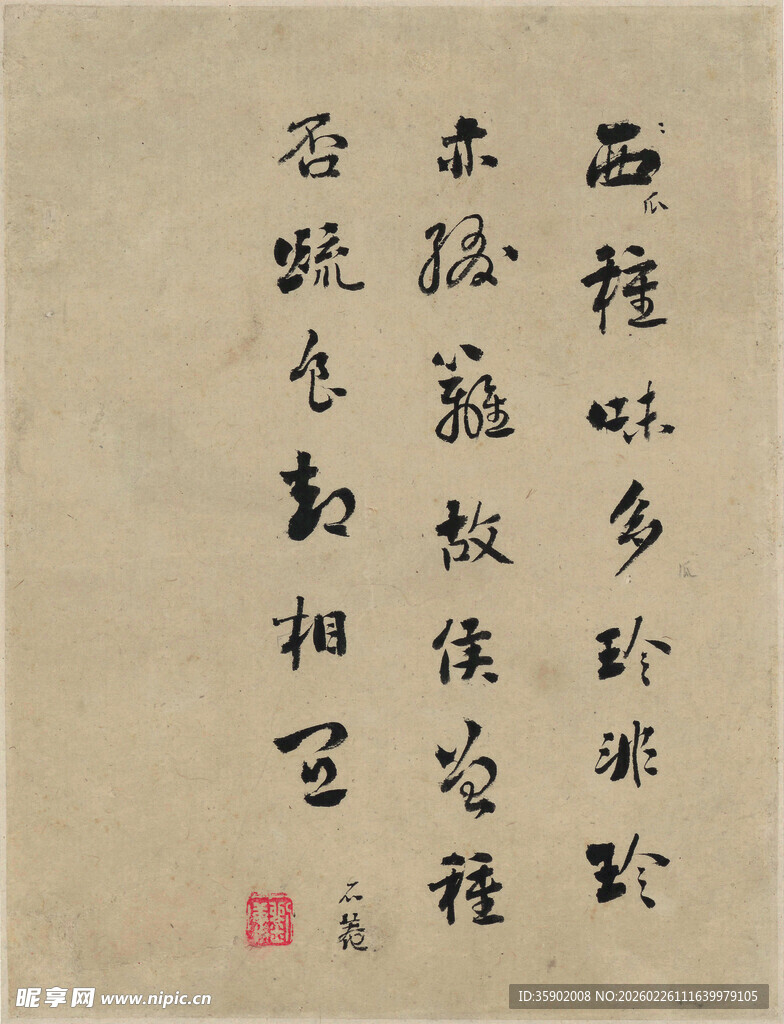 西瓜種味多珍非珍
瓜
亦綴籬故侯曾種
否疏食却相宜
石菴
昵享网 www.nipic.cn
ID:35902008 NO:20260226111639979105